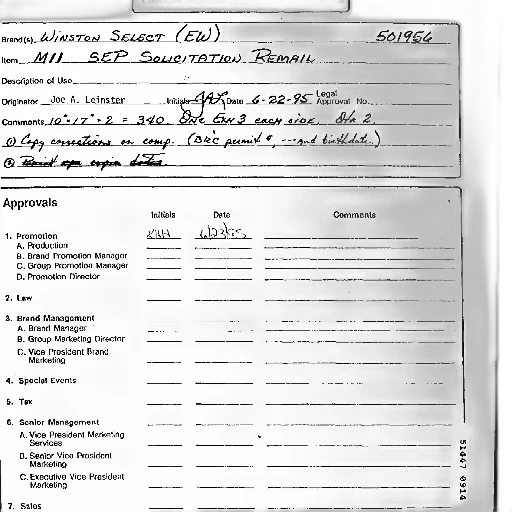 Brand(s) WINSTON SELECT (EW) 501956
Item M11 SEP SOLICITATION REMAIL
Description of Use
Originator Joe A. Leinster Initials JAL Date 6-22-95 Legal Approval No.
Comments 10" × 17" × 2 = 340. One 3 each side.
① Copy corrections on comp. (BRC permit #, --- and birthdate.)
②
Approvals
Initials Date Comments
1. Promotion 6/23/95
A. Production
B. Brand Promotion Manager
C. Group Promotion Manager
D. Promotion Director
2. Law
3. Brand Management
A. Brand Manager
B. Group Marketing Director
C. Vice President Brand
Marketing
4. Special Events
5. Tax
6. Senior Management
A. Vice President Marketing
Services
B. Senior Vice President
Marketing
C. Executive Vice President
Marketing
7. Sales
51447 0914